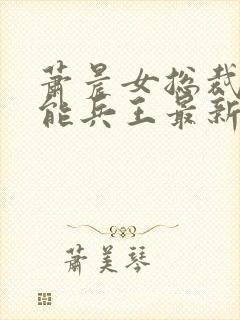 萧晨女总裁
能兵王最新
萧美琴